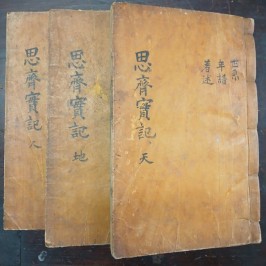 思齊實記 天
世系
年譜
著述
思齊實記 地
思齊實記 人